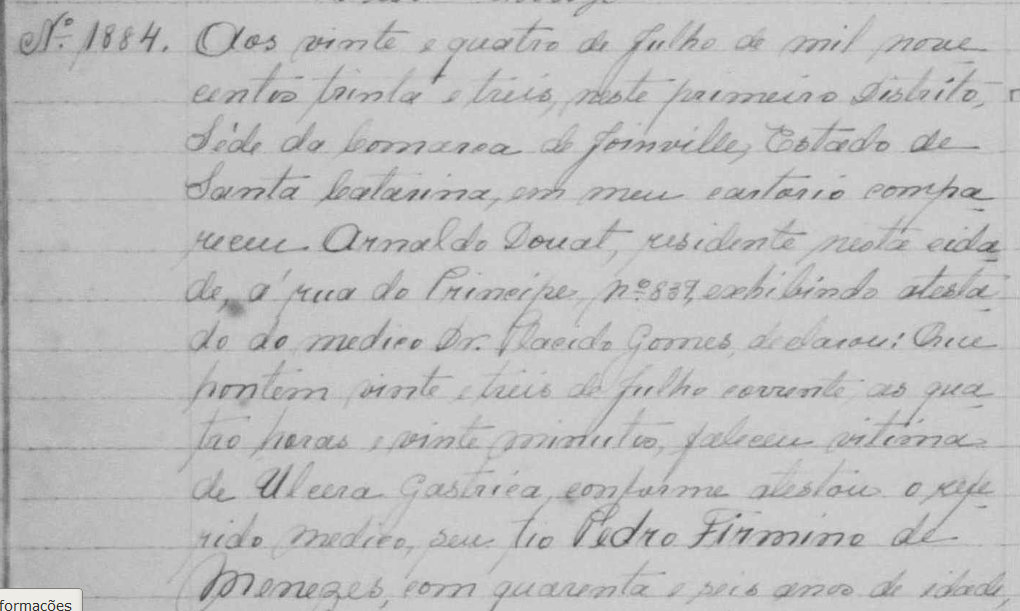 Nº 1884. Aos vinte e quatro de Julho de mil nove
centos trinta e treis, neste primeiro Distrito,
Séde da Comarca de Joinville, Estado de
Santa Catarina, em meu cartorio compa
receu Arnaldo Douat, residente nesta cida
de, á rua do Principe, nº 839, exhibindo atesta
do do medico Dr. Placido Gomes, declarou: Que
hontem vinte e treis de Julho corrente, as qua
tro horas e vinte minutos, faleceu vitima
de Ulcera Gastrica, conforme atestou o refe
rido medico, seu tio Pedro Firmino de
Menezes, com quarenta e seis anos de idade,
formações